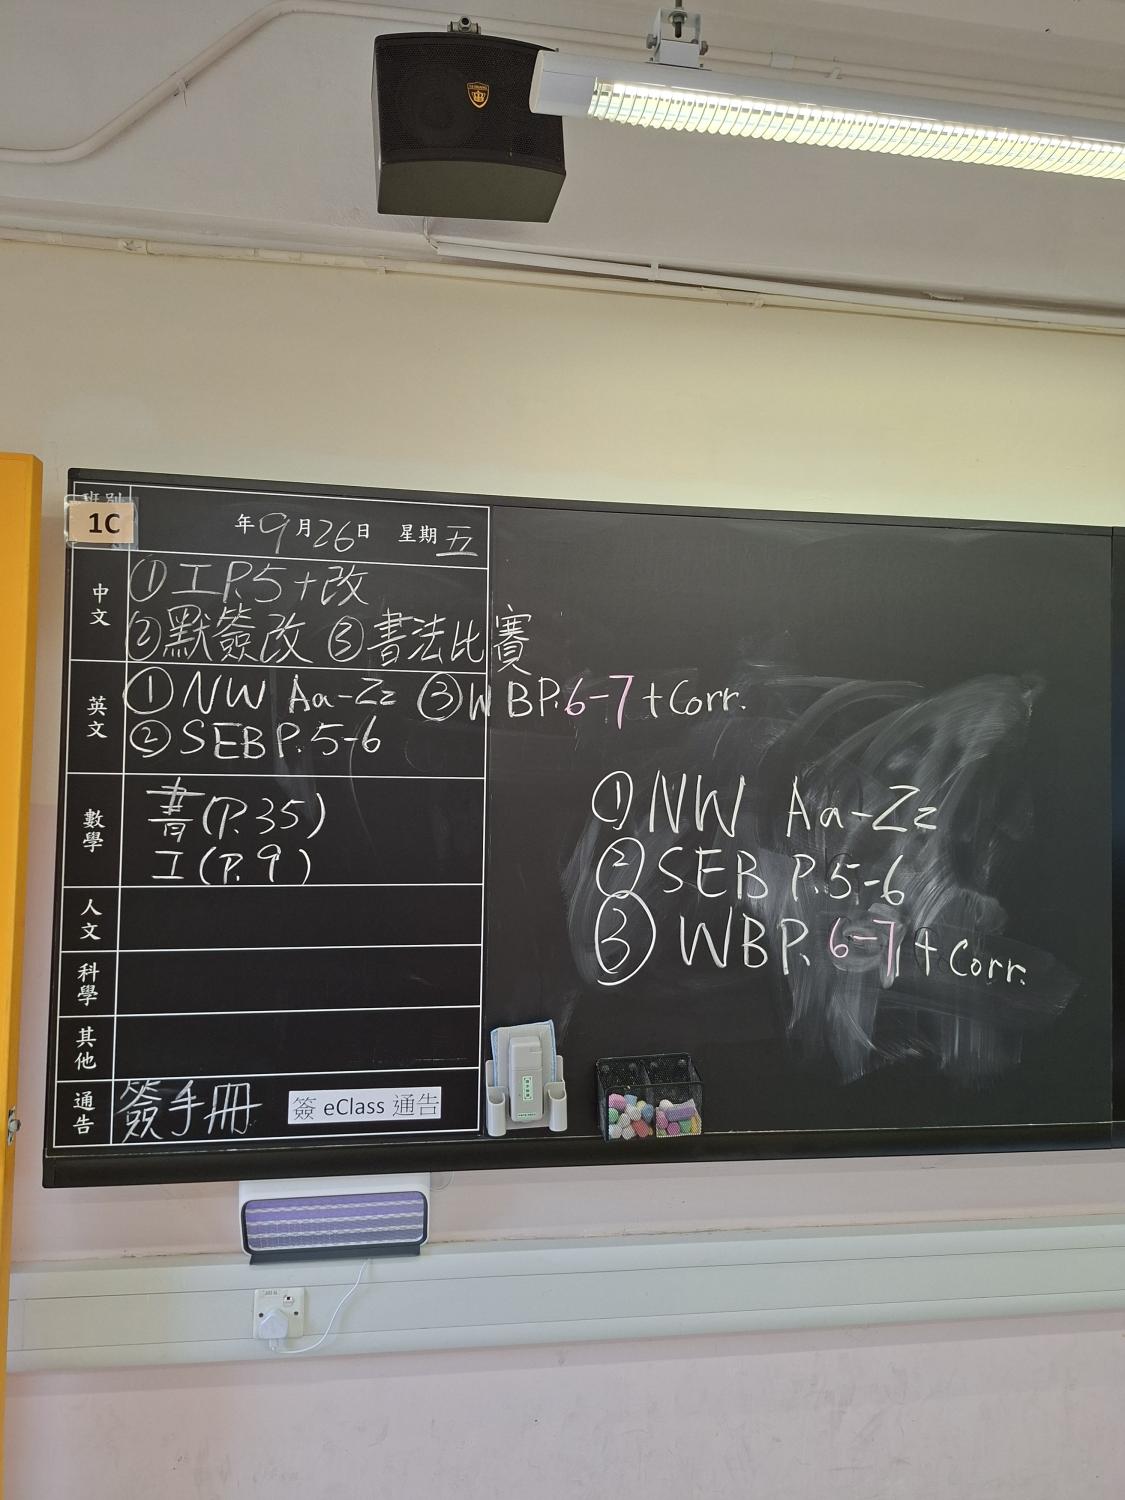 班別
1C
年9月26日 星期五
中文
①工P.5+改
②默簽改 ③書法比賽
英文
①NW Aa-Zz ③WBP.6-7+Corr.
②SEBP.5-6
數學
書(P.35)
工(P.9)
人文
科學
其他
通告
簽手冊 簽 eClass 通告
①NW Aa-Zz
②SEB P.5-6
③WBP.6-7+Corr.